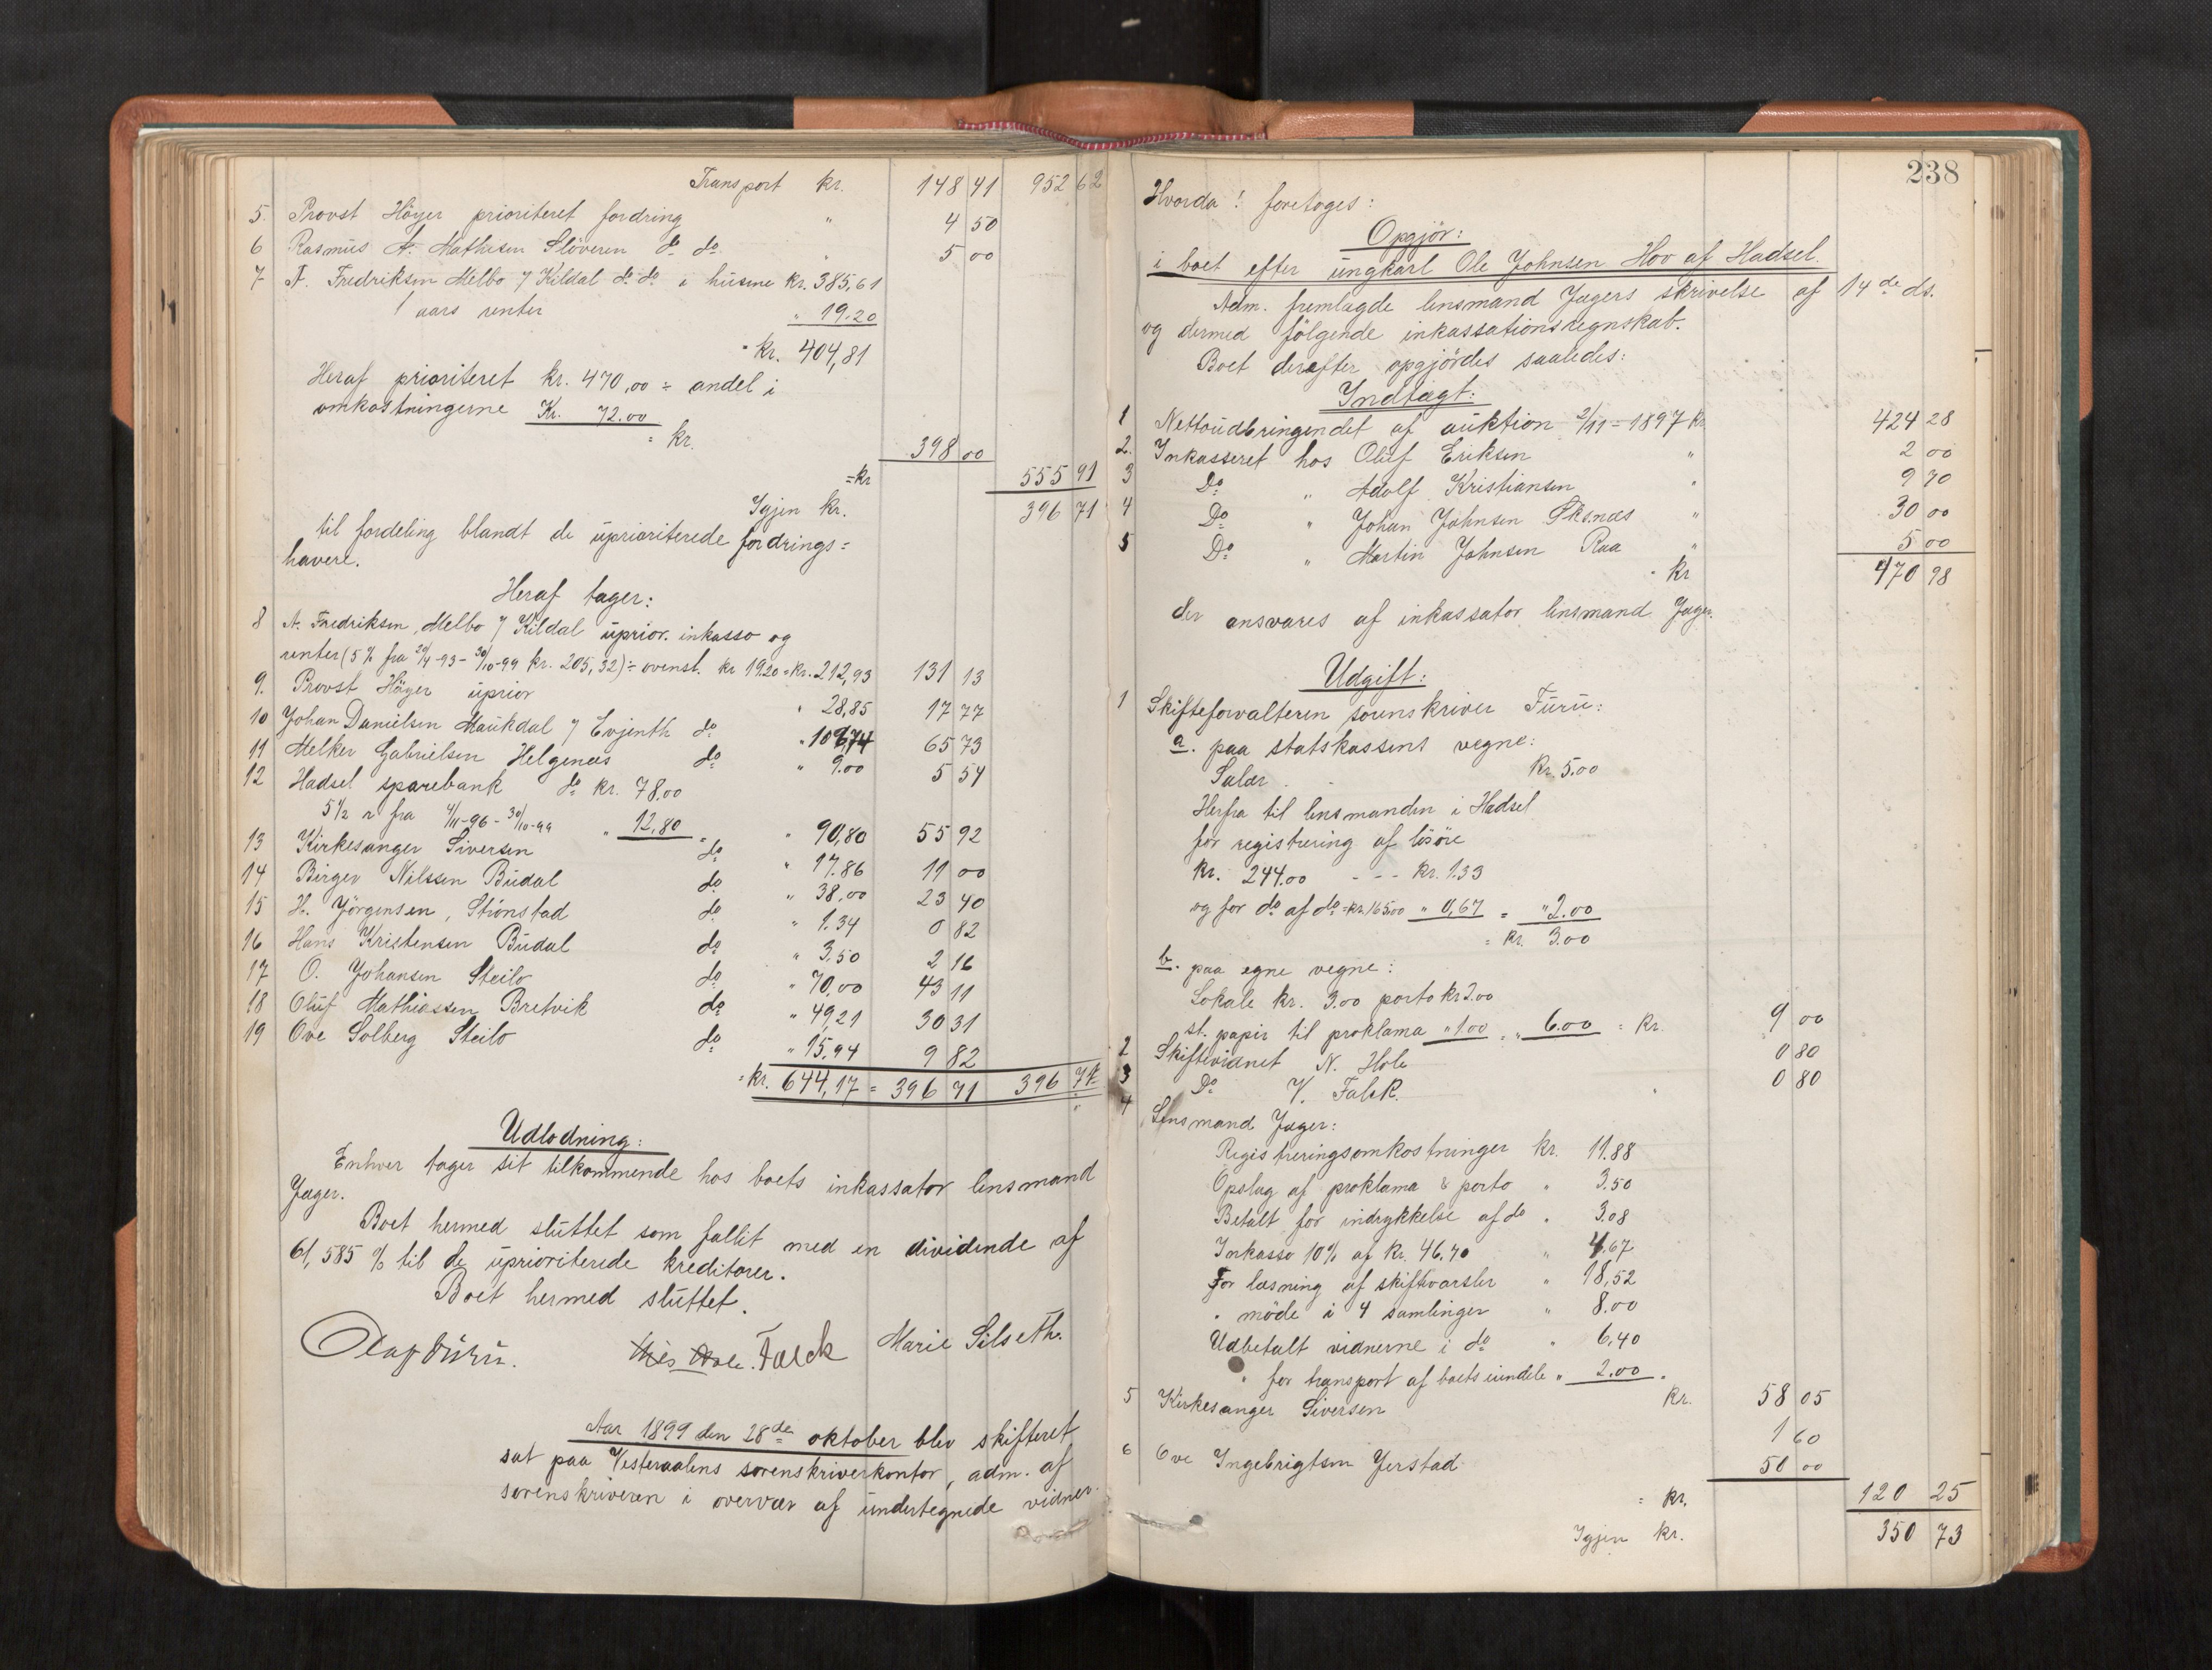 Transport kr. 148 41 952 62
5. Provst Höyer prioriteret fordring " 4 50
6 Rasmus N. Mathisen Slöveren do do. " 5 00
7 N. Fredriksen Melbo 7 Kildal do do i husene kr. 385,61
1 aars renter " 19.20
= kr. 404,81
Heraf prioriteret kr. 470,00 ÷ andel i
omkostningerne Kr. 72.00
= kr. 398 00
= kr 555 91
Igjen kr. 396 71
til fordeling blandt de uprioriterede fordrings=
havere.
Heraf tager:
8 N. Fredriksen, Melbo 7 Kildal uprior. inkasso og
renter (5 % fra 20/4-93 - 30/10-99 kr. 205,32) ÷ ovenst. kr 19.20 = kr. 212,93 131 13
9. Provst Höyer uprior " 28,85 17 77
10 Johan Danielsen Maukdal 7 Evjenth do " 106,74 65 73
11 Melker Gabrielsen Helgenæs do " 9.00 5 54
12 Hadsel sparebank do kr. 78.00
5 1/2 % fra 4/11-96 - 30/10-99 " 12,80 = " 90,80 55 92
13 Kirkesanger Siversen do " 17.86 11 00
14 Birger Nilssen Budal do " 38,00 23 40
15 H. Jörgensen, Stönstad do " 1.34 0 82
16 Hans Kristensen Budal do " 3,50 2 16
17 O. Johansen Steilo do " 70,00 43 11
18 Oluf Mathiassen Bretvik do " 49,21 30 31
19 Ove Solberg Steilo do " 15,94 9 82
= kr. 644,17 = 396 71 396 71
"
Udlodning:
Enhver tager sit tilkommende hos boets inkassator lensmand
Jæger.
Boet hermed sluttet som fallit med en dividende af
61,585 % til de uprioriterede kreditorer.
Boet hermed sluttet.
Olaf Furu. Nils Hole. Falck Marie Silseth.
Aar 1899 den 28de oktober blev skifteret
sat paa Vesteraalens sorenskriverkontor, adm. af
sorenskriveren i overvær af undertegnede vidner.
238
Hvorda! foretoges:
Opgjör:
i boet efter ungkarl Ole Johnsen Hov af Hadsel.
Adm. fremlagde lensmand Jægers skrivelse af 14de ds.
og dermed fölgende inkassationsregnskab.
Boet derefter opgjördes saaledes:
Indtægt:
1 Nettoudbringendet af auktion 2/11-1897 kr 424 28
2. Inkasseret hos Oluf Eriksen " 2 00
3 Do " Adolf Kristiansen " 9 70
4 Do " Johan Johnsen Oksnæs " 30 00
5 Do " Martin Johnsen Raa " 5 00
= kr 470 98
der ansvares af inkassator lensmand Jæger.
Udgift:
1 Skifteforvalteren sorenskriver Furu:
a. paa statskassens vegne:
Salær kr. 5.00
Herfra til lensmanden i Hadsel
for registrering af lösöre
kr. 244.00 - - - kr. 1.33
og for do af do = kr. 165.00 " 0,67 = " 2.00
= kr. 3.00
b. paa egne vegne:
Lokale kr. 3.00 porto kr 2.00
st. papir til proklama " 1.00 = " 6.00 = kr. 9 00
2 Skiftevidnet N. Hole 0 80
3 Do V. Falck. " 0 80
4 Lensmand Jæger:
Registreringsomkostninger kr. 11.88
Opslag af proklama & porto " 3.50
Betalt for indrykkelse af do " 3.08
Inkasso 10% af kr. 46.70 " 4.67
For læsning af skiftevarsler " 18,52
" möde i 4 samlinger " 8.00
Udbetalt vidnerne i do " 6.40
" for transport af boets eiendele " 2.00 =
kr. 58 05
5 Kirkesanger Siversen 1 60
6 Ove Ingebrigtsen Jerstad 50 00
= kr. 120 25
Igjen kr. 350 73